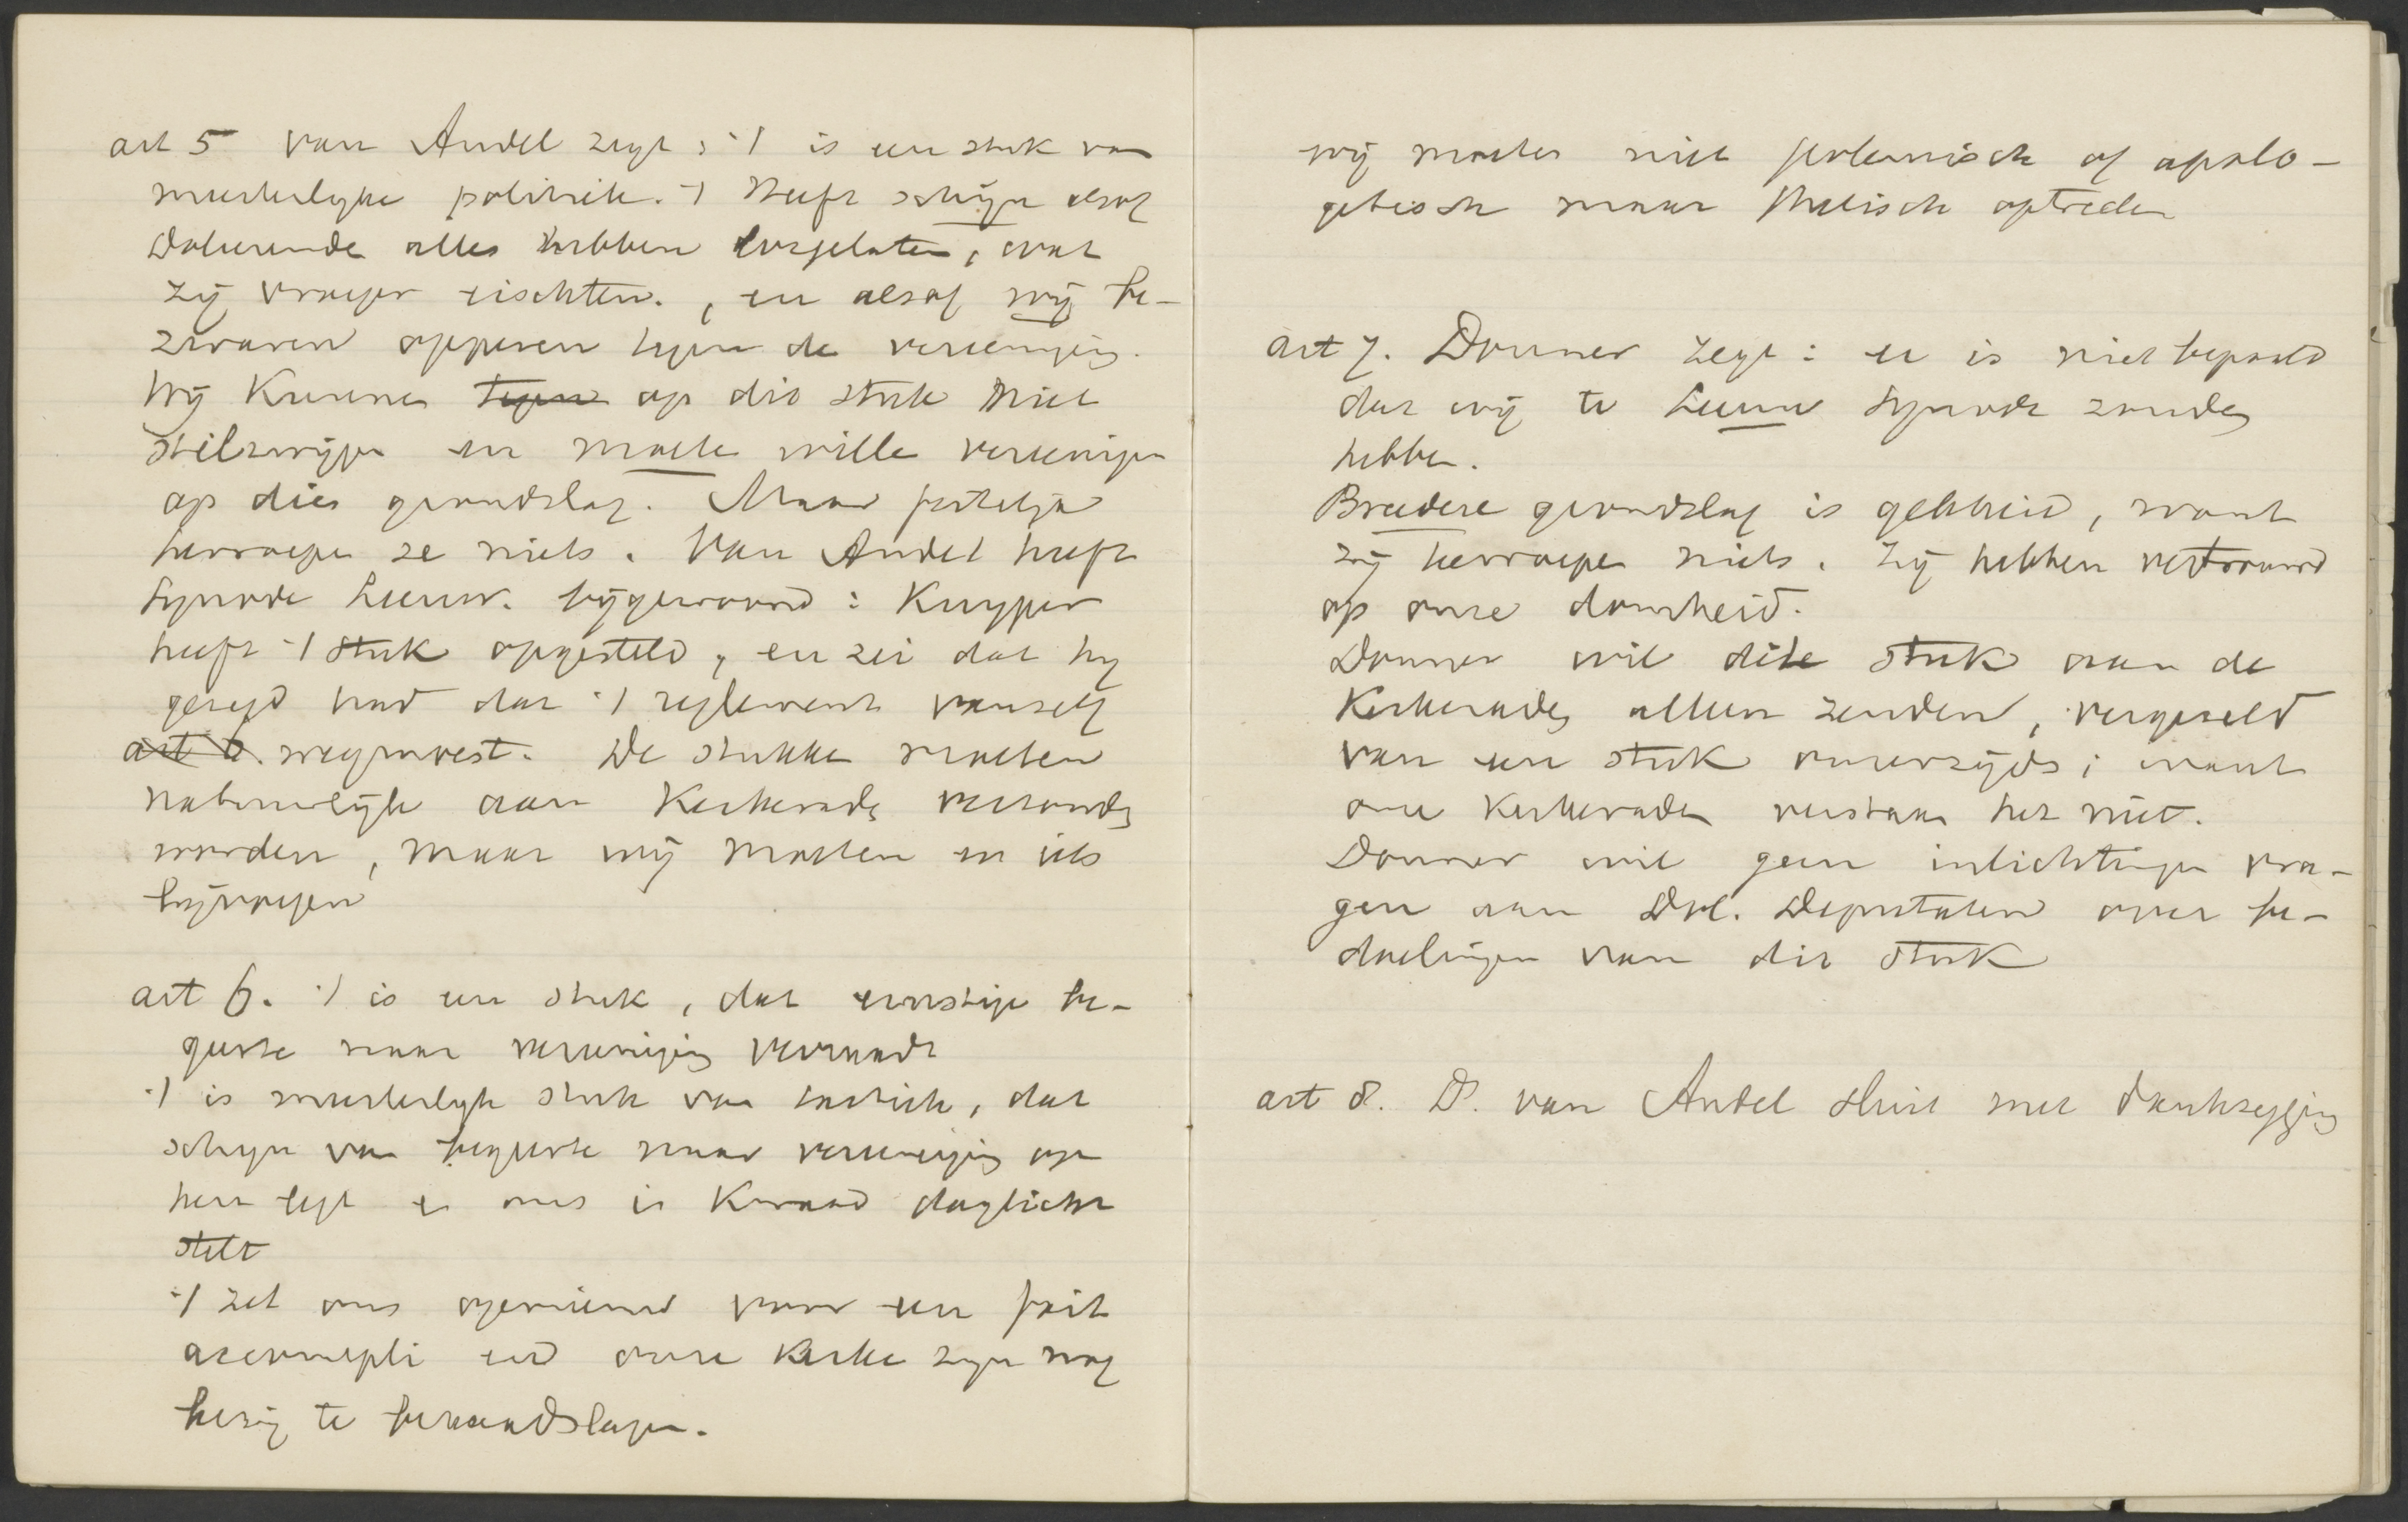 art 5 van Andel zegt : 't is een stuk van
meesterlyke politiek. 't Heeft schijn alsof
Doleerende alles hebben losgelaten, wat
zij vroeger eischten. , en alsof wij be-
zwaren opperen tegen de vereeniging.
Wij kunnen tegen op dit stuk niet
stilzwijgen en moeten willen vereenigen
op dien grondslag. Maar feitelijk
herroepen ze niets. Van Andel heeft
Synode Leeuw. bijgewoond : Kuyper
heeft 't stuk opgesteld, en zei dat hy
gezegd had dat 't reglement vanzelf
art 6. wegmoest. De stukken moeten
natuurlijk aan Kerkeraden verzonden
worden, maar wij moeten er iets
bijvoegen

art 6. 't is een stuk, dat ernstige be-
geerte naar vereeniging verraadt
't is meesterlyk stuk van tactiek, dat
schijn van begeerte naar vereeniging op
hen legt en ons in kwaad daglicht
stelt
't zet ons opnieuw voor een fait
accompli en onze Kerken zijn nog
bezig te beraadslagen.

wij moeten niet polemisch of apolo-
getisch maar thetisch optreden

art 7. Donner zegt : er is niet bepaald
dat wij te Leeuw Synode zouden
hebben.
Breedere grondslag is gebleid, want
zij herroepen niets. Zij hebben vertrouwd
op onze domheid.
Donner wil dit stuk aan de
Kerkeraden alleen zenden, vergezeld
van een stuk onzerzijds ; want
onze Kerkeraden verstaan het niet.
Donner wil geen inlichtingen vra-
gen aan Dol. Deputaten over be-
doelingen van dit stuk

art 8. D. van Andel sluit met dankzegging